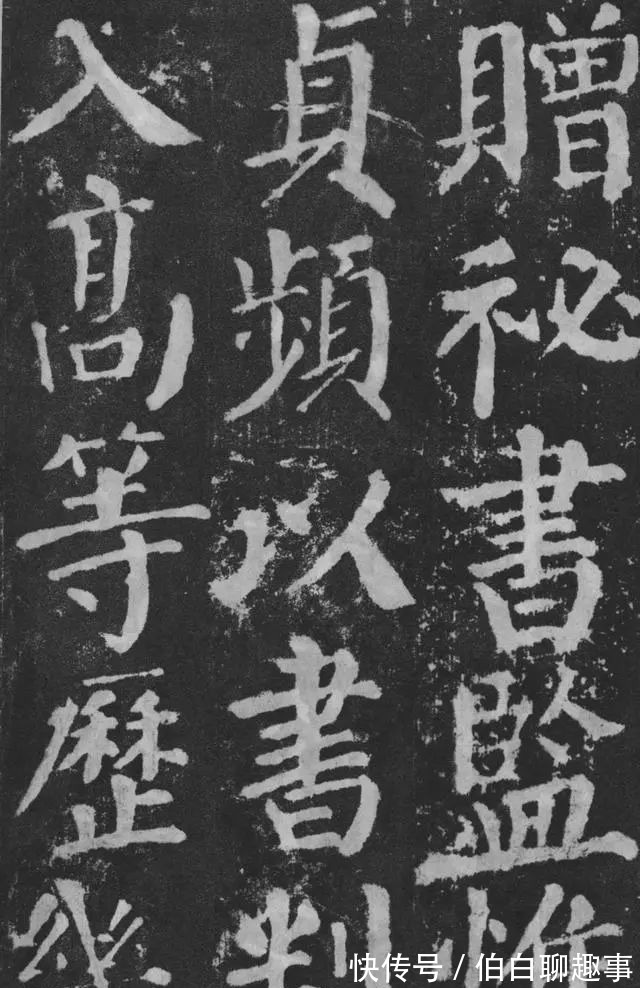 贈祕書監惟
貞頻以書判
入髙等歷畿
快传号 / 伯白聊趣事